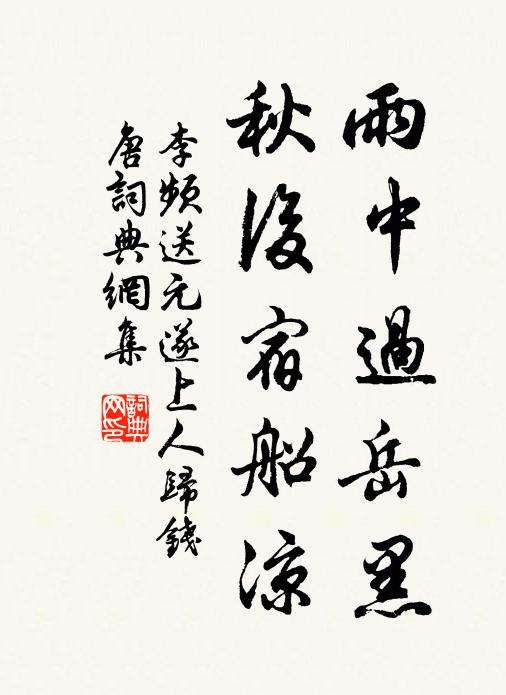 雨中過岳黑
秋後宿船涼
李頻送元遂上人歸錢
唐詞典網集
詞典
网印